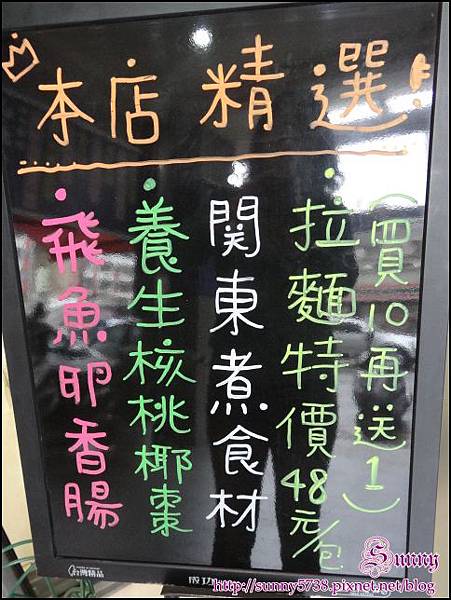 本店精選!
(買10再送1)
拉麵特價48元/包
関東煮食材
養生核桃椰棗
飛魚卵香腸
台灣精品
成功
Sunny
http://sunny5738.pixnet.net/blog